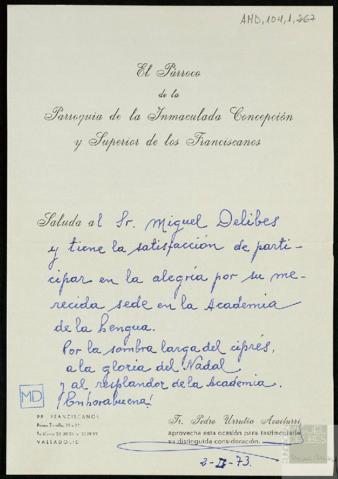 AMD,104,1,267
El Párroco
de la
Parroquia de la Inmaculada Concepción
y Superior de los Franciscanos
Saluda al Sr. Miguel Delibes
y tiene la satisfacción de parti-
cipar en la alegría por su me-
recida sede en la Academia
de la Lengua.
Por la sombra larga del ciprés,
a la gloria del Nadal
y al resplandor de la Academia.
¡Enhorabuena!
MD
PP. FRANCISCANOS
VALLADOLID
Fr. Pedro Urrutia
aprovecha esta ocasión para testimoniarle
su distinguida consideración.
2-II-73.